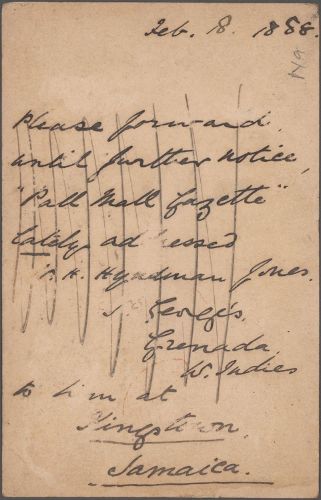 Feb. 8. 1888.
Please forward,
until further notice,
"Pall Mall Gazette",
lately addressed
H. Hyndman Jones.
St. George's,
Grenada
W. Indies
to him at
Kingstown,
Jamaica.